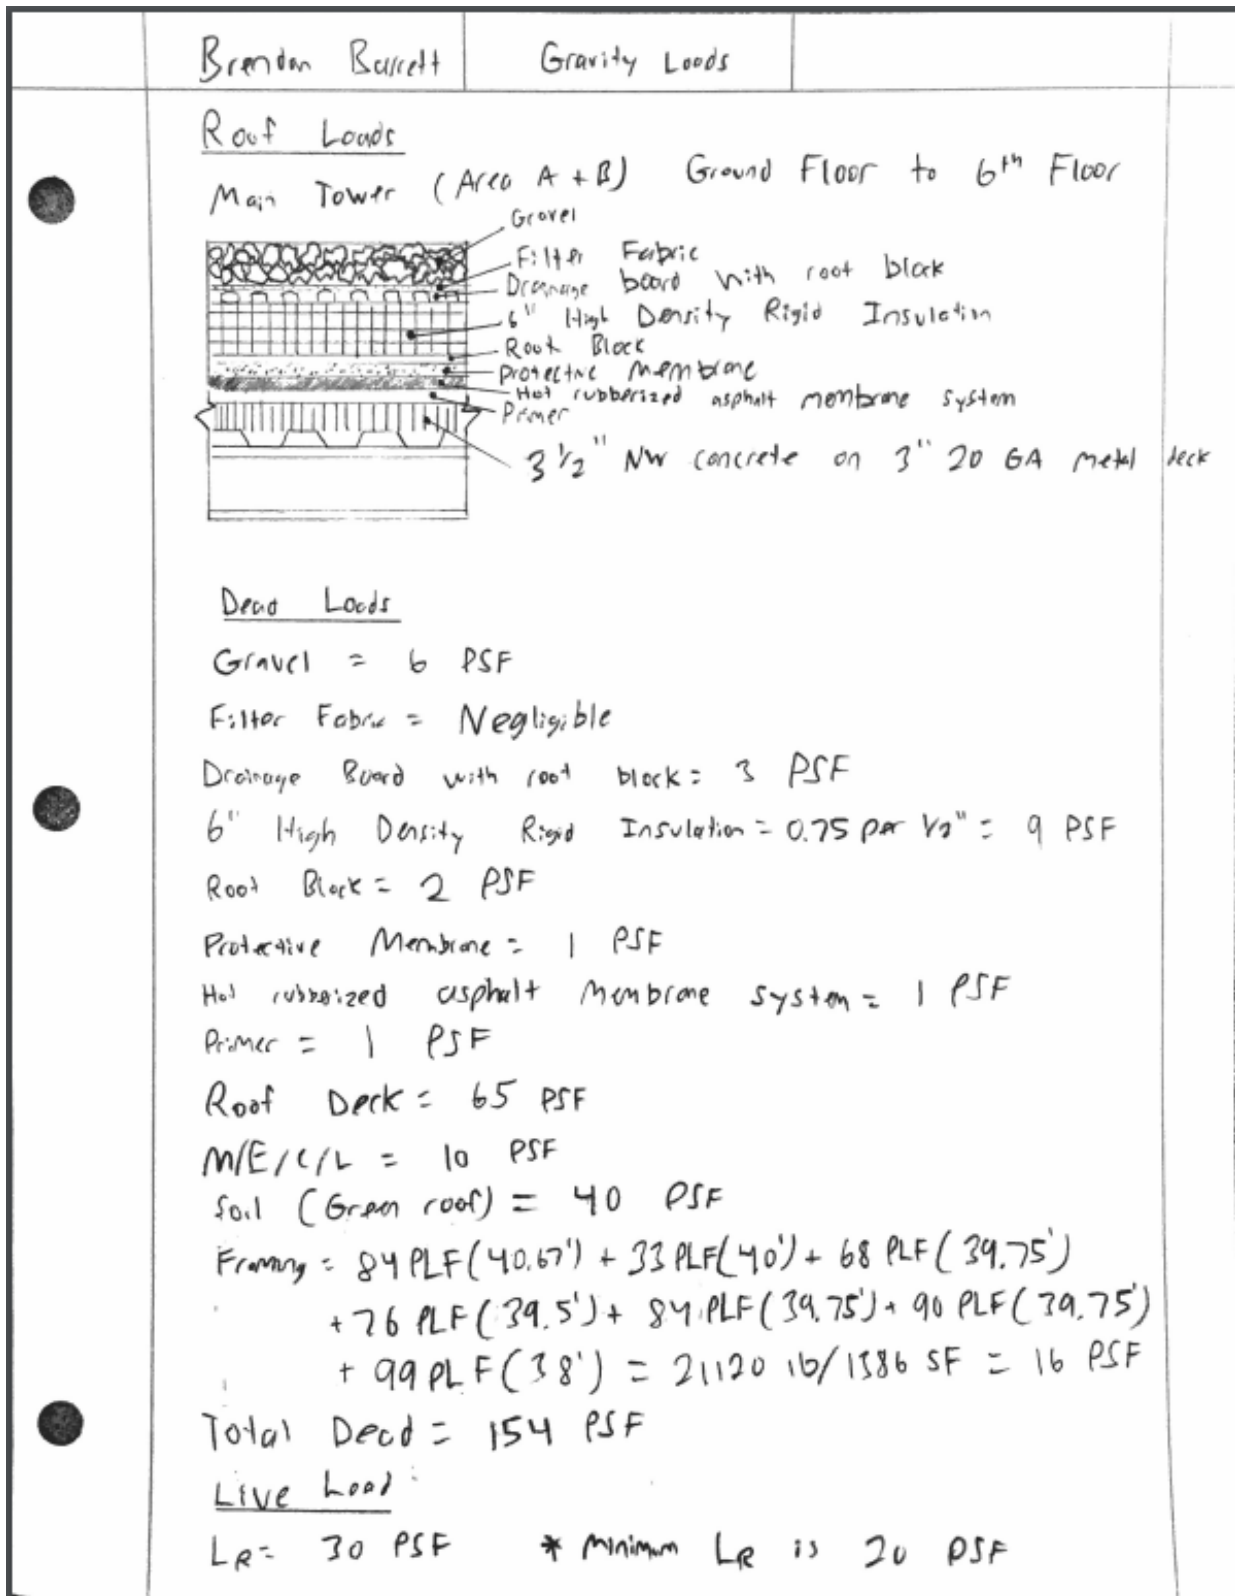 Brendan Barrett
Gravity Loads
Roof Loads
Main Tower (Area A + B) Ground Floor to 6th Floor
Gravel
Filter Fabric
Drainage board with root block
6" High Density Rigid Insulation
Root Block
Protective Membrane
Hot rubberized asphalt membrane system
Primer
3 1/2" NW concrete on 3" 20 GA metal deck
Dead Loads
Gravel = 6 PSF
Filter Fabric = Negligible
Drainage Board with root block = 3 PSF
6" High Density Rigid Insulation = 0.75 per 1/2" = 9 PSF
Root Block = 2 PSF
Protective Membrane = 1 PSF
Hot rubberized asphalt Membrane system = 1 PSF
Primer = 1 PSF
Roof Deck = 65 PSF
M/E/C/L = 10 PSF
Soil (Green roof) = 40 PSF
Framing = 84 PLF(40.67') + 33 PLF(40') + 68 PLF(39.75')
+ 76 PLF(39.5') + 84 PLF(39.75') + 90 PLF(39.75')
+ 99 PLF(38') = 21120 lb/1386 SF = 16 PSF
Total Dead = 154 PSF
Live Load
LR = 30 PSF * Minimum LR is 20 PSF